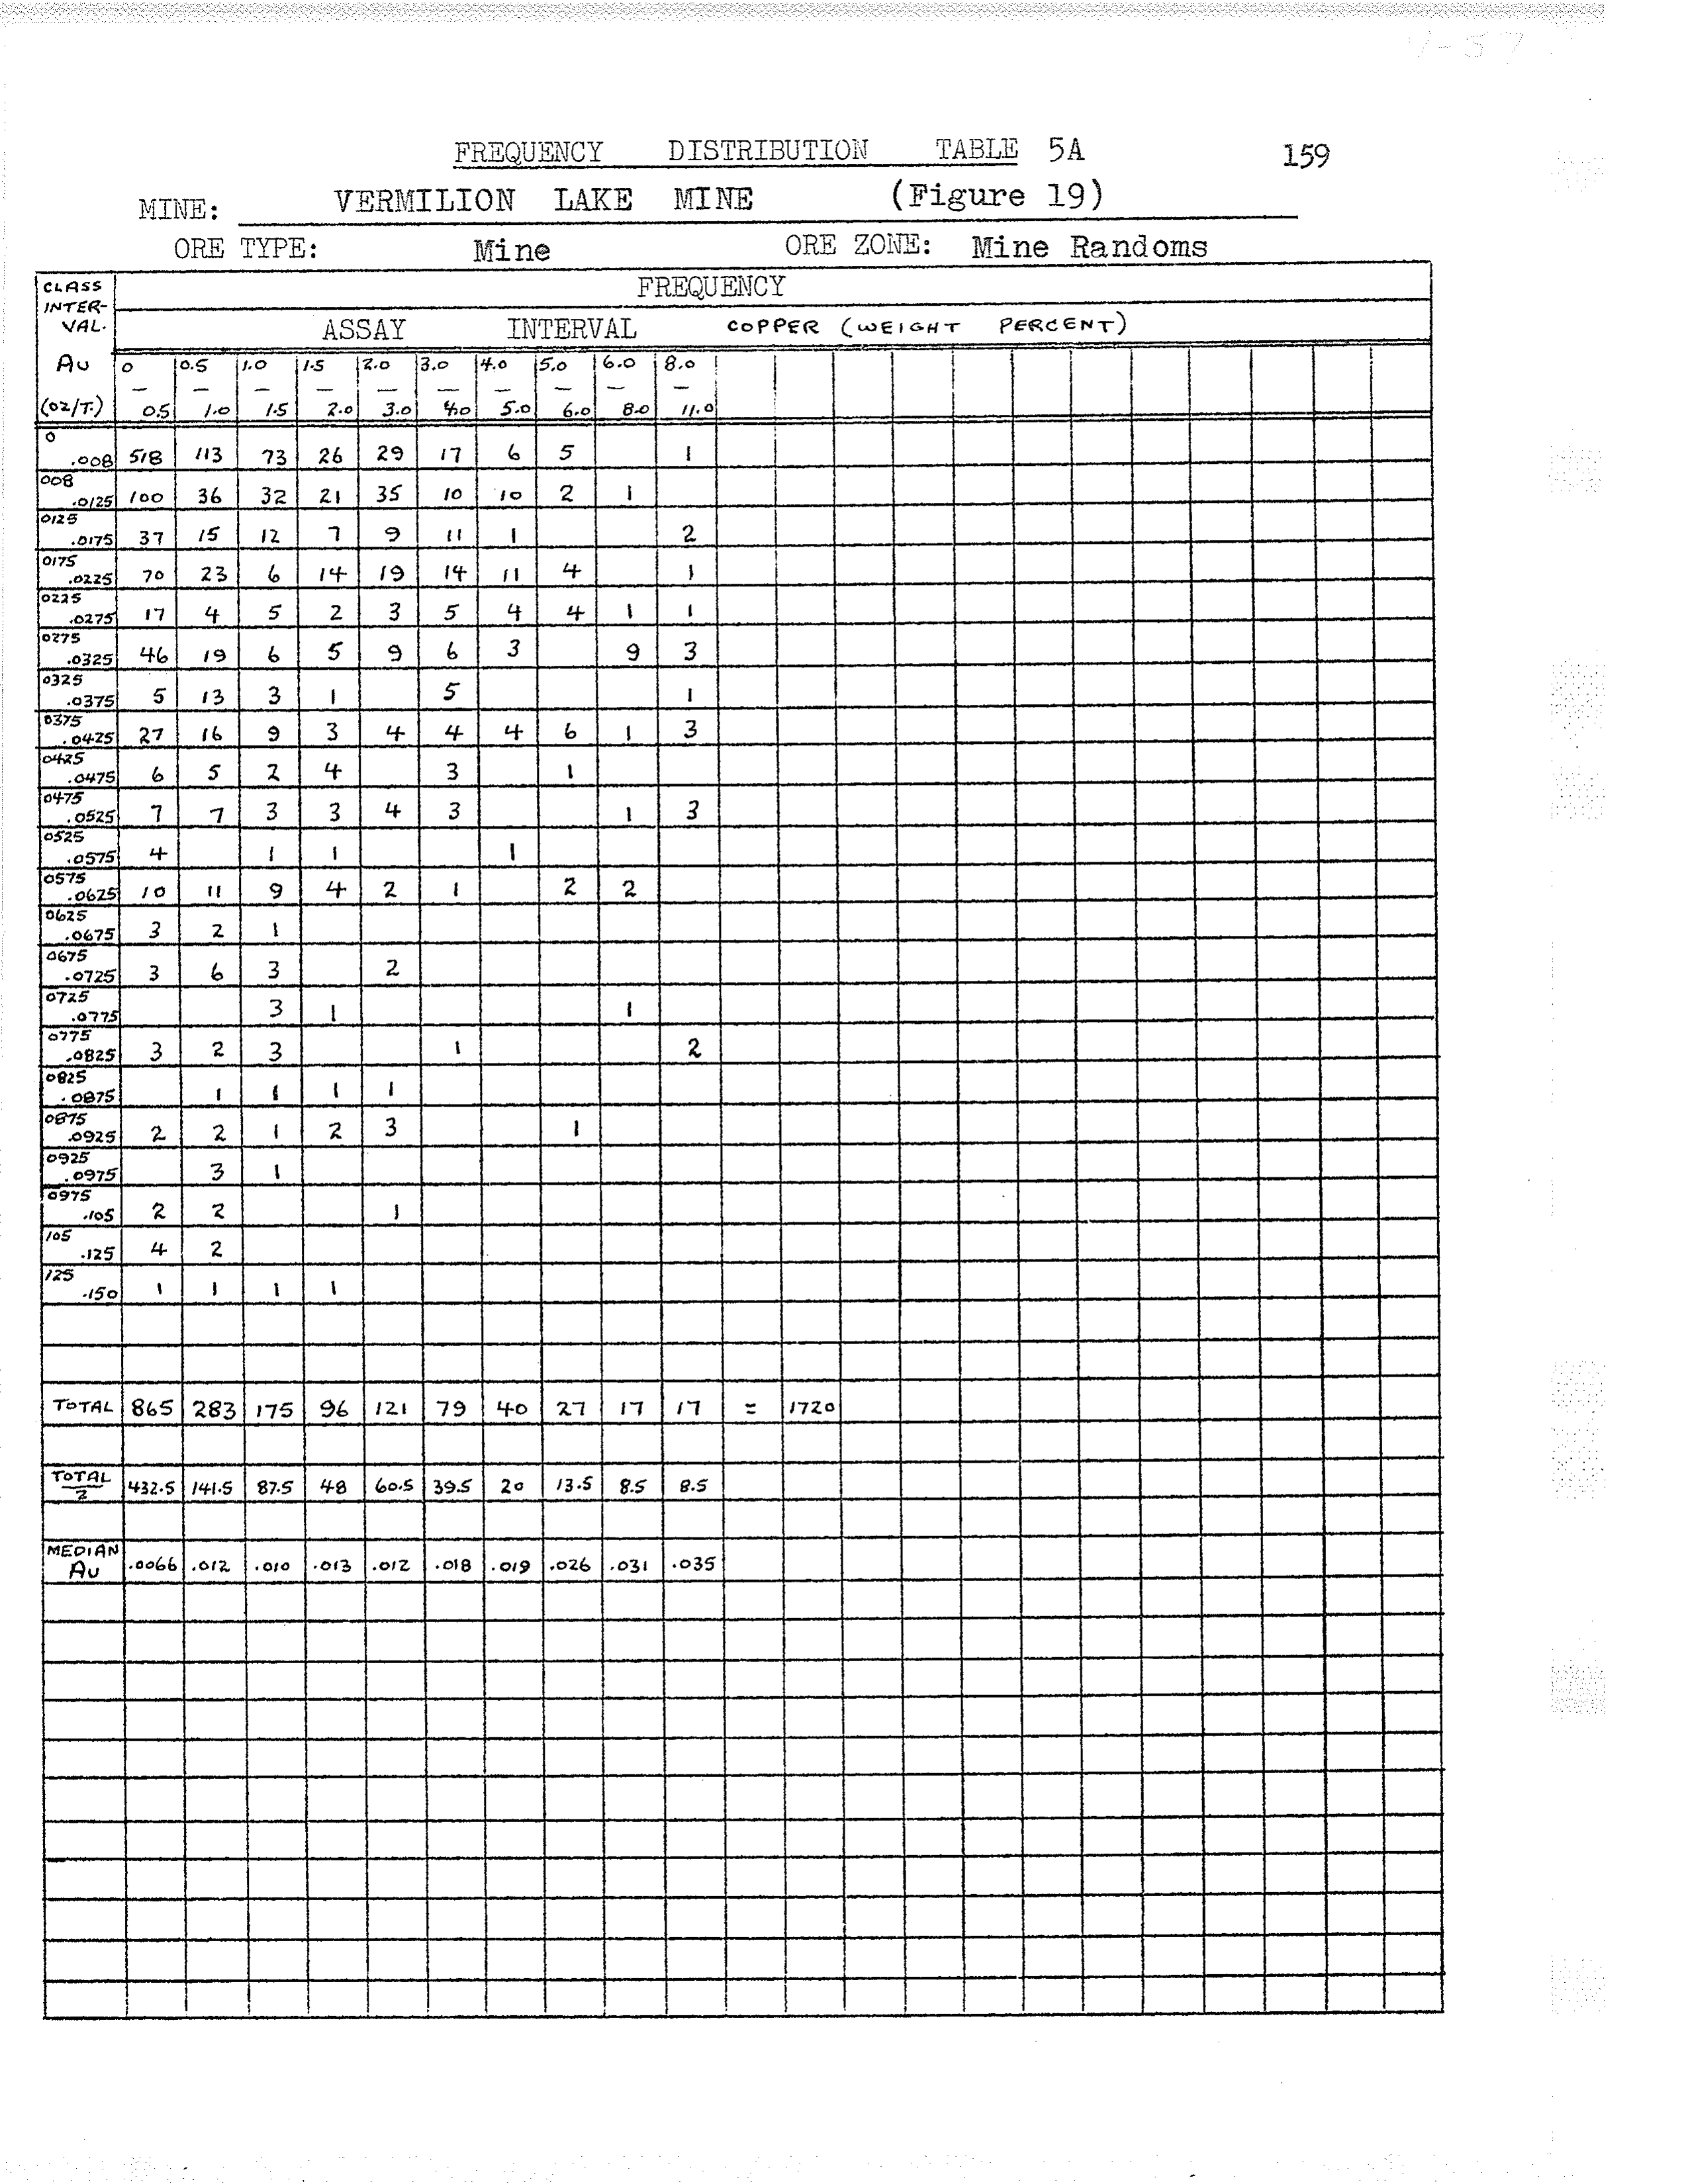 4-57
FREQUENCY DISTRIBUTION TABLE 5A 159
MINE: VERMILION LAKE MINE (Figure 19)
ORE TYPE: Mine ORE ZONE: Mine Randoms
CLASS INTER-VAL. Au (oz/T.)
FREQUENCY
ASSAY INTERVAL COPPER (WEIGHT PERCENT)
0 0.5 1.0 1.5 2.0 3.0 4.0 5.0 6.0 8.0
— — — — — — — — — —
0.5 1.0 1.5 2.0 3.0 4.0 5.0 6.0 8.0 11.0
0
.008 518 113 73 26 29 17 6 5 1
008
.0125 100 36 32 21 35 10 10 2 1
0125
.0175 37 15 12 7 9 11 1 2
0175
.0225 70 23 6 14 19 14 11 4 1
0225
.0275 17 4 5 2 3 5 4 4 1 1
0275
.0325 46 19 6 5 9 6 3 9 3
0325
.0375 5 13 3 1 5 1
0375
.0425 27 16 9 3 4 4 4 6 1 3
0425
.0475 6 5 2 4 3 1
0475
.0525 7 7 3 3 4 3 1 3
0525
.0575 4 1 1 1
0575
.0625 10 11 9 4 2 1 2 2
0625
.0675 3 2 1
0675
.0725 3 6 3 2
0725
.0775 3 1 1
0775
.0825 3 2 3 1 2
0825
.0875 1 1 1 1
0875
.0925 2 2 1 2 3 1
0925
.0975 3 1
0975
.105 2 2 1
105
.125 4 2
125
.150 1 1 1 1
TOTAL 865 283 175 96 121 79 40 27 17 17 = 1720
TOTAL
2 432.5 141.5 87.5 48 60.5 39.5 20 13.5 8.5 8.5
MEDIAN
Au .0066 .012 .010 .013 .012 .018 .019 .026 .031 .035